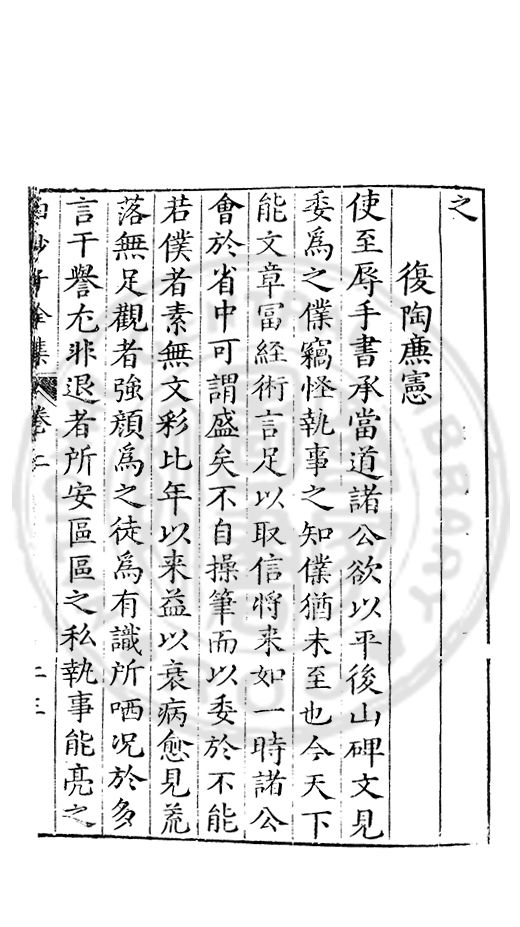 之
復陶廉憲
使至辱手書承當道諸公欲以平後山碑文見
委爲之僕竊怪執事之知僕猶未至也今天下
能文章冨経術言足以取信将来如一時諸公
會於省中可謂盛矣不自操筆而以委於不能
若僕者素無文彩比年以来益以衰病愈見荒
落無足觀者強顔爲之徒爲有識所哂况於多
言干譽尤非退者所安區區之私執事能亮之
白沙子全集 卷二 二三